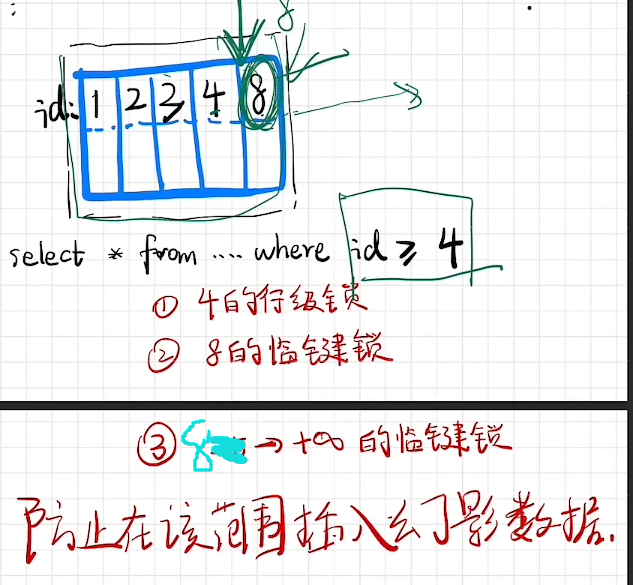 8
id: 1 2 3 4 8
select * from .... where id ≥ 4
① 4的行级锁
② 8的临键锁
③ 8 → +∞ 的临键锁
防止在该范围插入幻影数据.